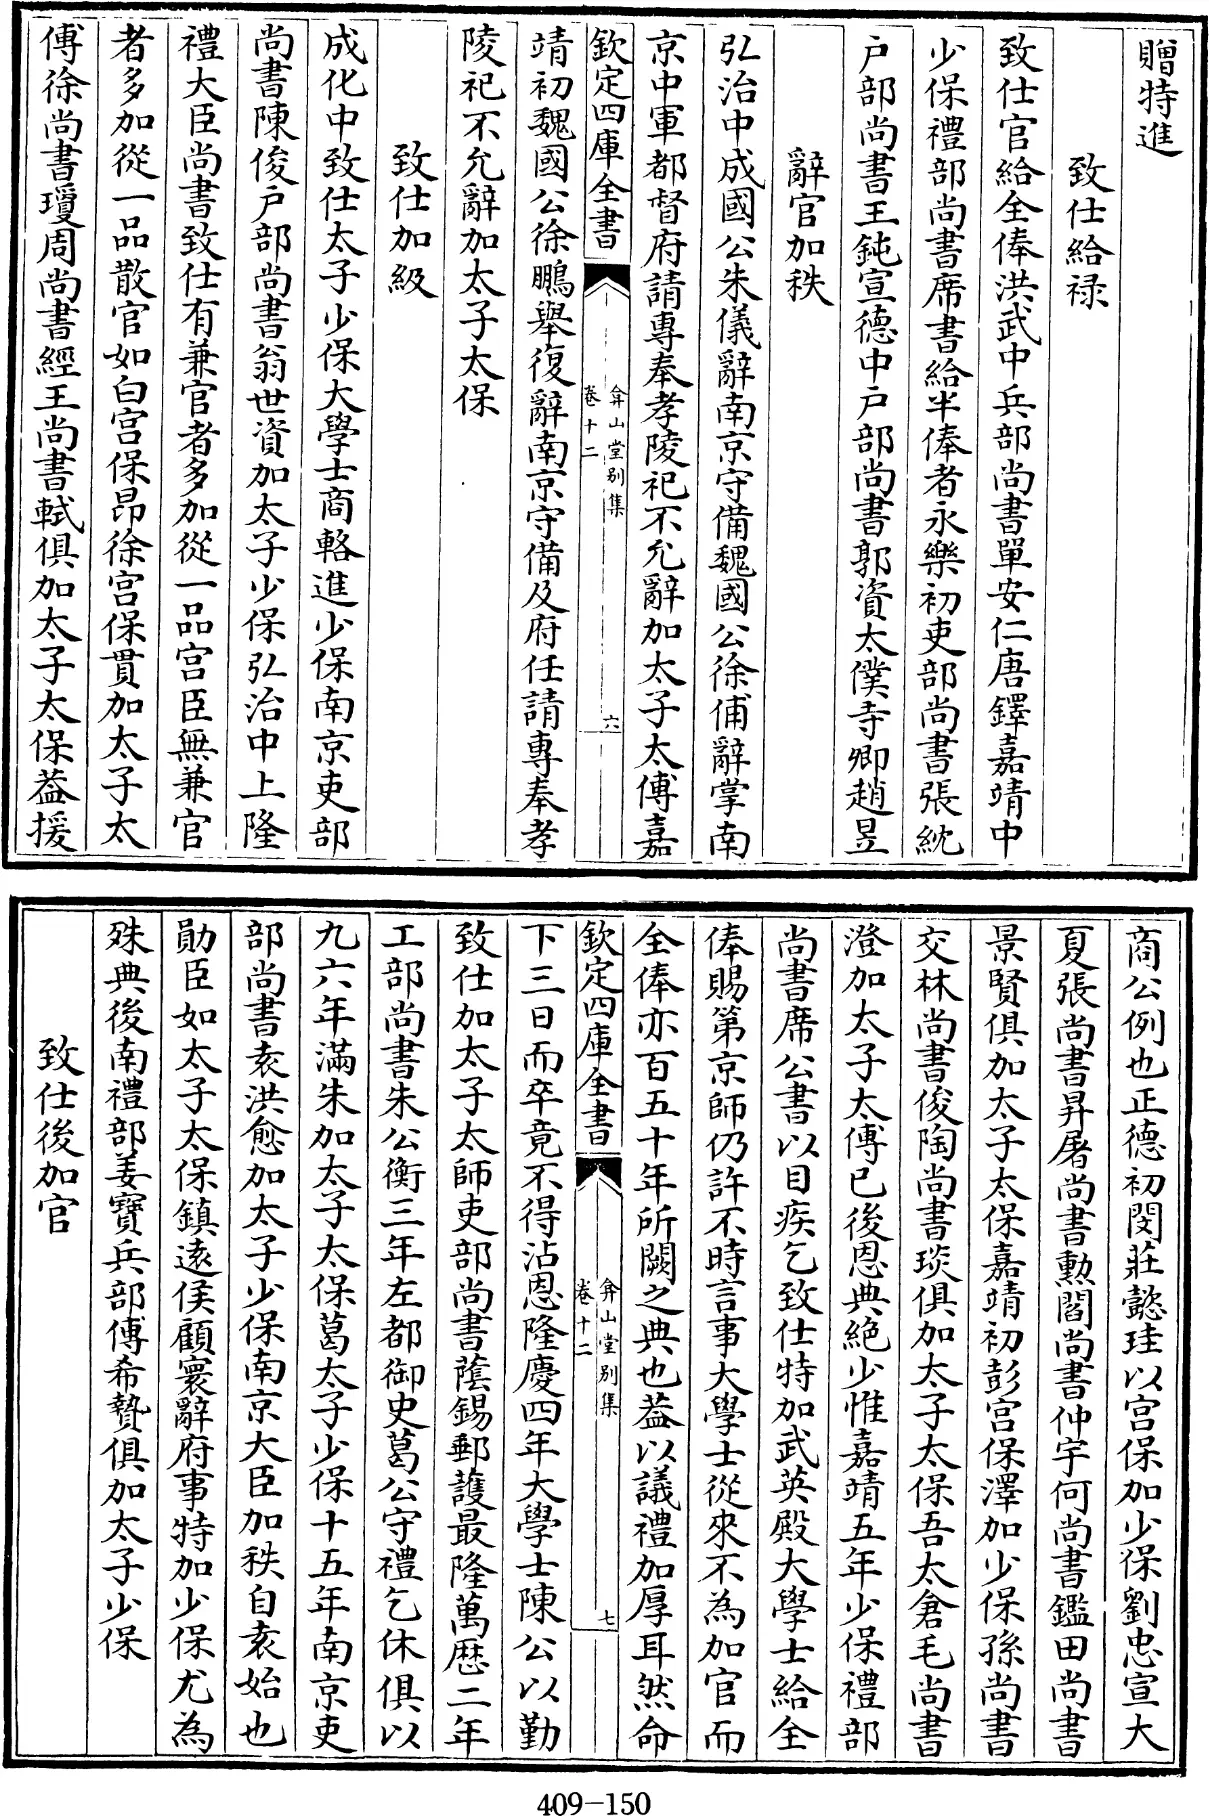 贈特進
致仕給祿
致仕官給全俸洪武中兵部尚書單安仁唐鐸嘉靖中
少保禮部尚書席書給半俸者永樂初吏部尚書張紞
户部尚書王鈍宣德中户部尚書郭資太僕寺卿趙昱
辭官加秩
弘治中成國公朱儀辭南京守備魏國公徐俌辭掌南
京中軍都督府請專奉孝陵祀不允辭加太子太傅嘉
欽定四庫全書
弇山堂別集
卷十二
六
靖初魏國公徐鵬舉復辭南京守備及府任請專奉孝
陵祀不允辭加太子太保
致仕加級
成化中致仕太子少保大學士商輅進少保南京吏部
尚書陳俊户部尚書翁世資加太子少保弘治中上隆
禮大臣尚書致仕有兼官者多加從一品宫臣無兼官
者多加從一品散官如白宫保昂徐宫保貫加太子太
傅徐尚書瓊周尚書經王尚書軾俱加太子太保葢援
商公例也正德初閔莊懿珪以宫保加少保劉忠宣大
夏張尚書昇屠尚書勲閻尚書仲宇何尚書鑑田尚書
景賢俱加太子太保嘉靖初彭宫保澤加少保孫尚書
交林尚書俊陶尚書琰俱加太子太保吾太倉毛尚書
澄加太子太傅已後恩典絶少惟嘉靖五年少保禮部
尚書席公書以目疾乞致仕特加武英殿大學士給全
俸賜第京師仍許不時言事大學士從來不為加官而
全俸亦百五十年所闕之典也葢以議禮加厚耳然命
欽定四庫全書
弇山堂別集
卷十二
七
下三日而卒竟不得沾恩隆慶四年大學士陳公以勤
致仕加太子太師吏部尚書蔭錫郵䕶最隆萬歴二年
工部尚書朱公衡三年左都御史葛公守禮乞休俱以
九六年滿朱加太子太保葛太子少保十五年南京吏
部尚書袁洪愈加太子少保南京大臣加秩自袁始也
勛臣如太子太保鎮逺侯顧寰辭府事特加少保尤為
殊典後南禮部姜寶兵部傅希摯俱加太子少保
致仕後加官
409-150